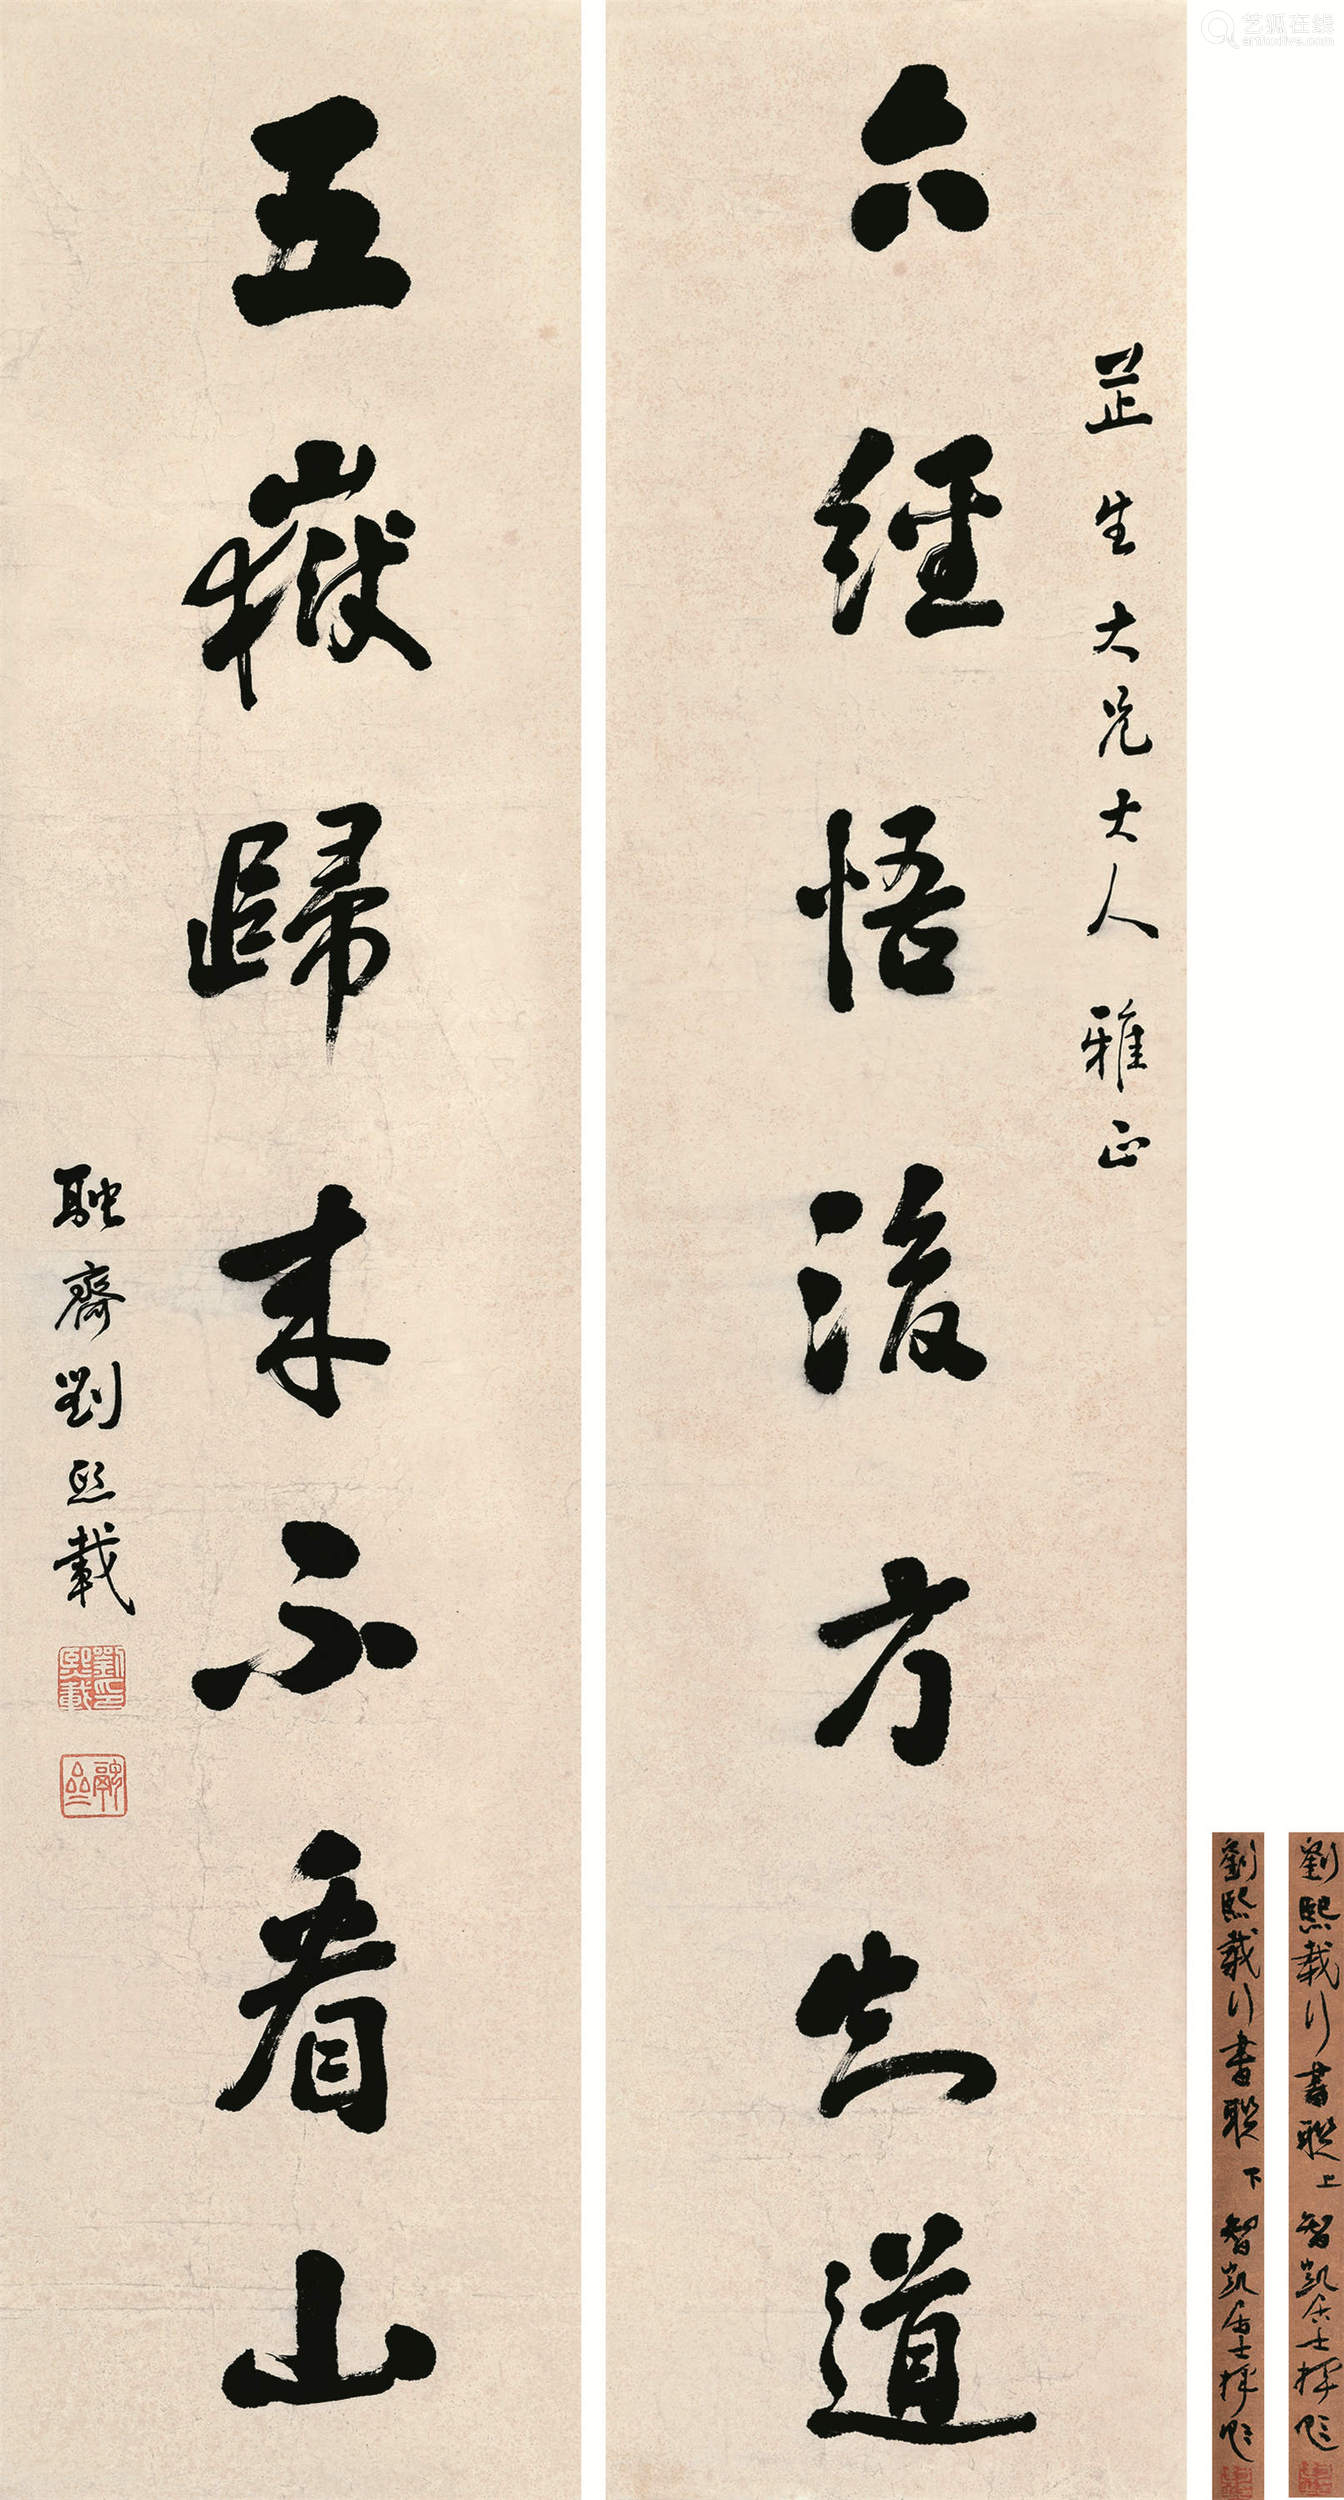 艺狐在线
artfoxlive.com
芷生大兄大人雅正
六經悟後方知道
五嶽歸來不看山
融齋劉熙載
劉熙載印
劉熙載行書聯 上 智凱居士
劉熙載行書聯 下 智凱居士